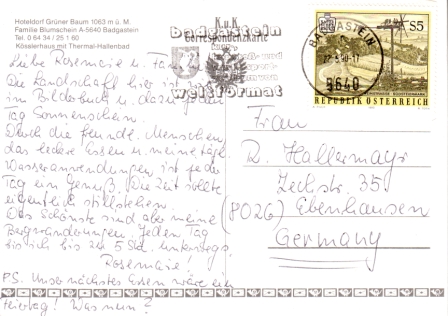 Hoteldorf Grüner Baum 1063 m ü. M.
Familie Blumschein A-5640 Badgastein
Tel. 0 64 34 / 25 1 60
Kösslerhaus mit Thermal-Hallenbad
Liebe Rosemarie u. Fam.
Die Landschaft hier ist
im Bilderbuch u. dazu jeden
Tag Sonnenschein.
Durch die freundl. Menschen,
das leckere Essen u. meine tägl.
Wasseranwendungen ist jeder
Tag ein Genuß. Die Zeit sollte
eigentlich stillstehen.
Das Schönste sind aber meine
Bergwanderungen. Jeden Tag
bis ich bis zu 5 Std. unterwegs.
Rosemarie!
PS. Unser nächstes Essen wäre ein
Feiertag! Was nun?
K.u.K.
badgastein
Correspondenzkarte
weltformat
BADGASTEIN
5640
S5
REPUBLIK ÖSTERREICH
Frau
R. Hallermayr
Zechstr. 35
(8026) Ebenhausen
Germany